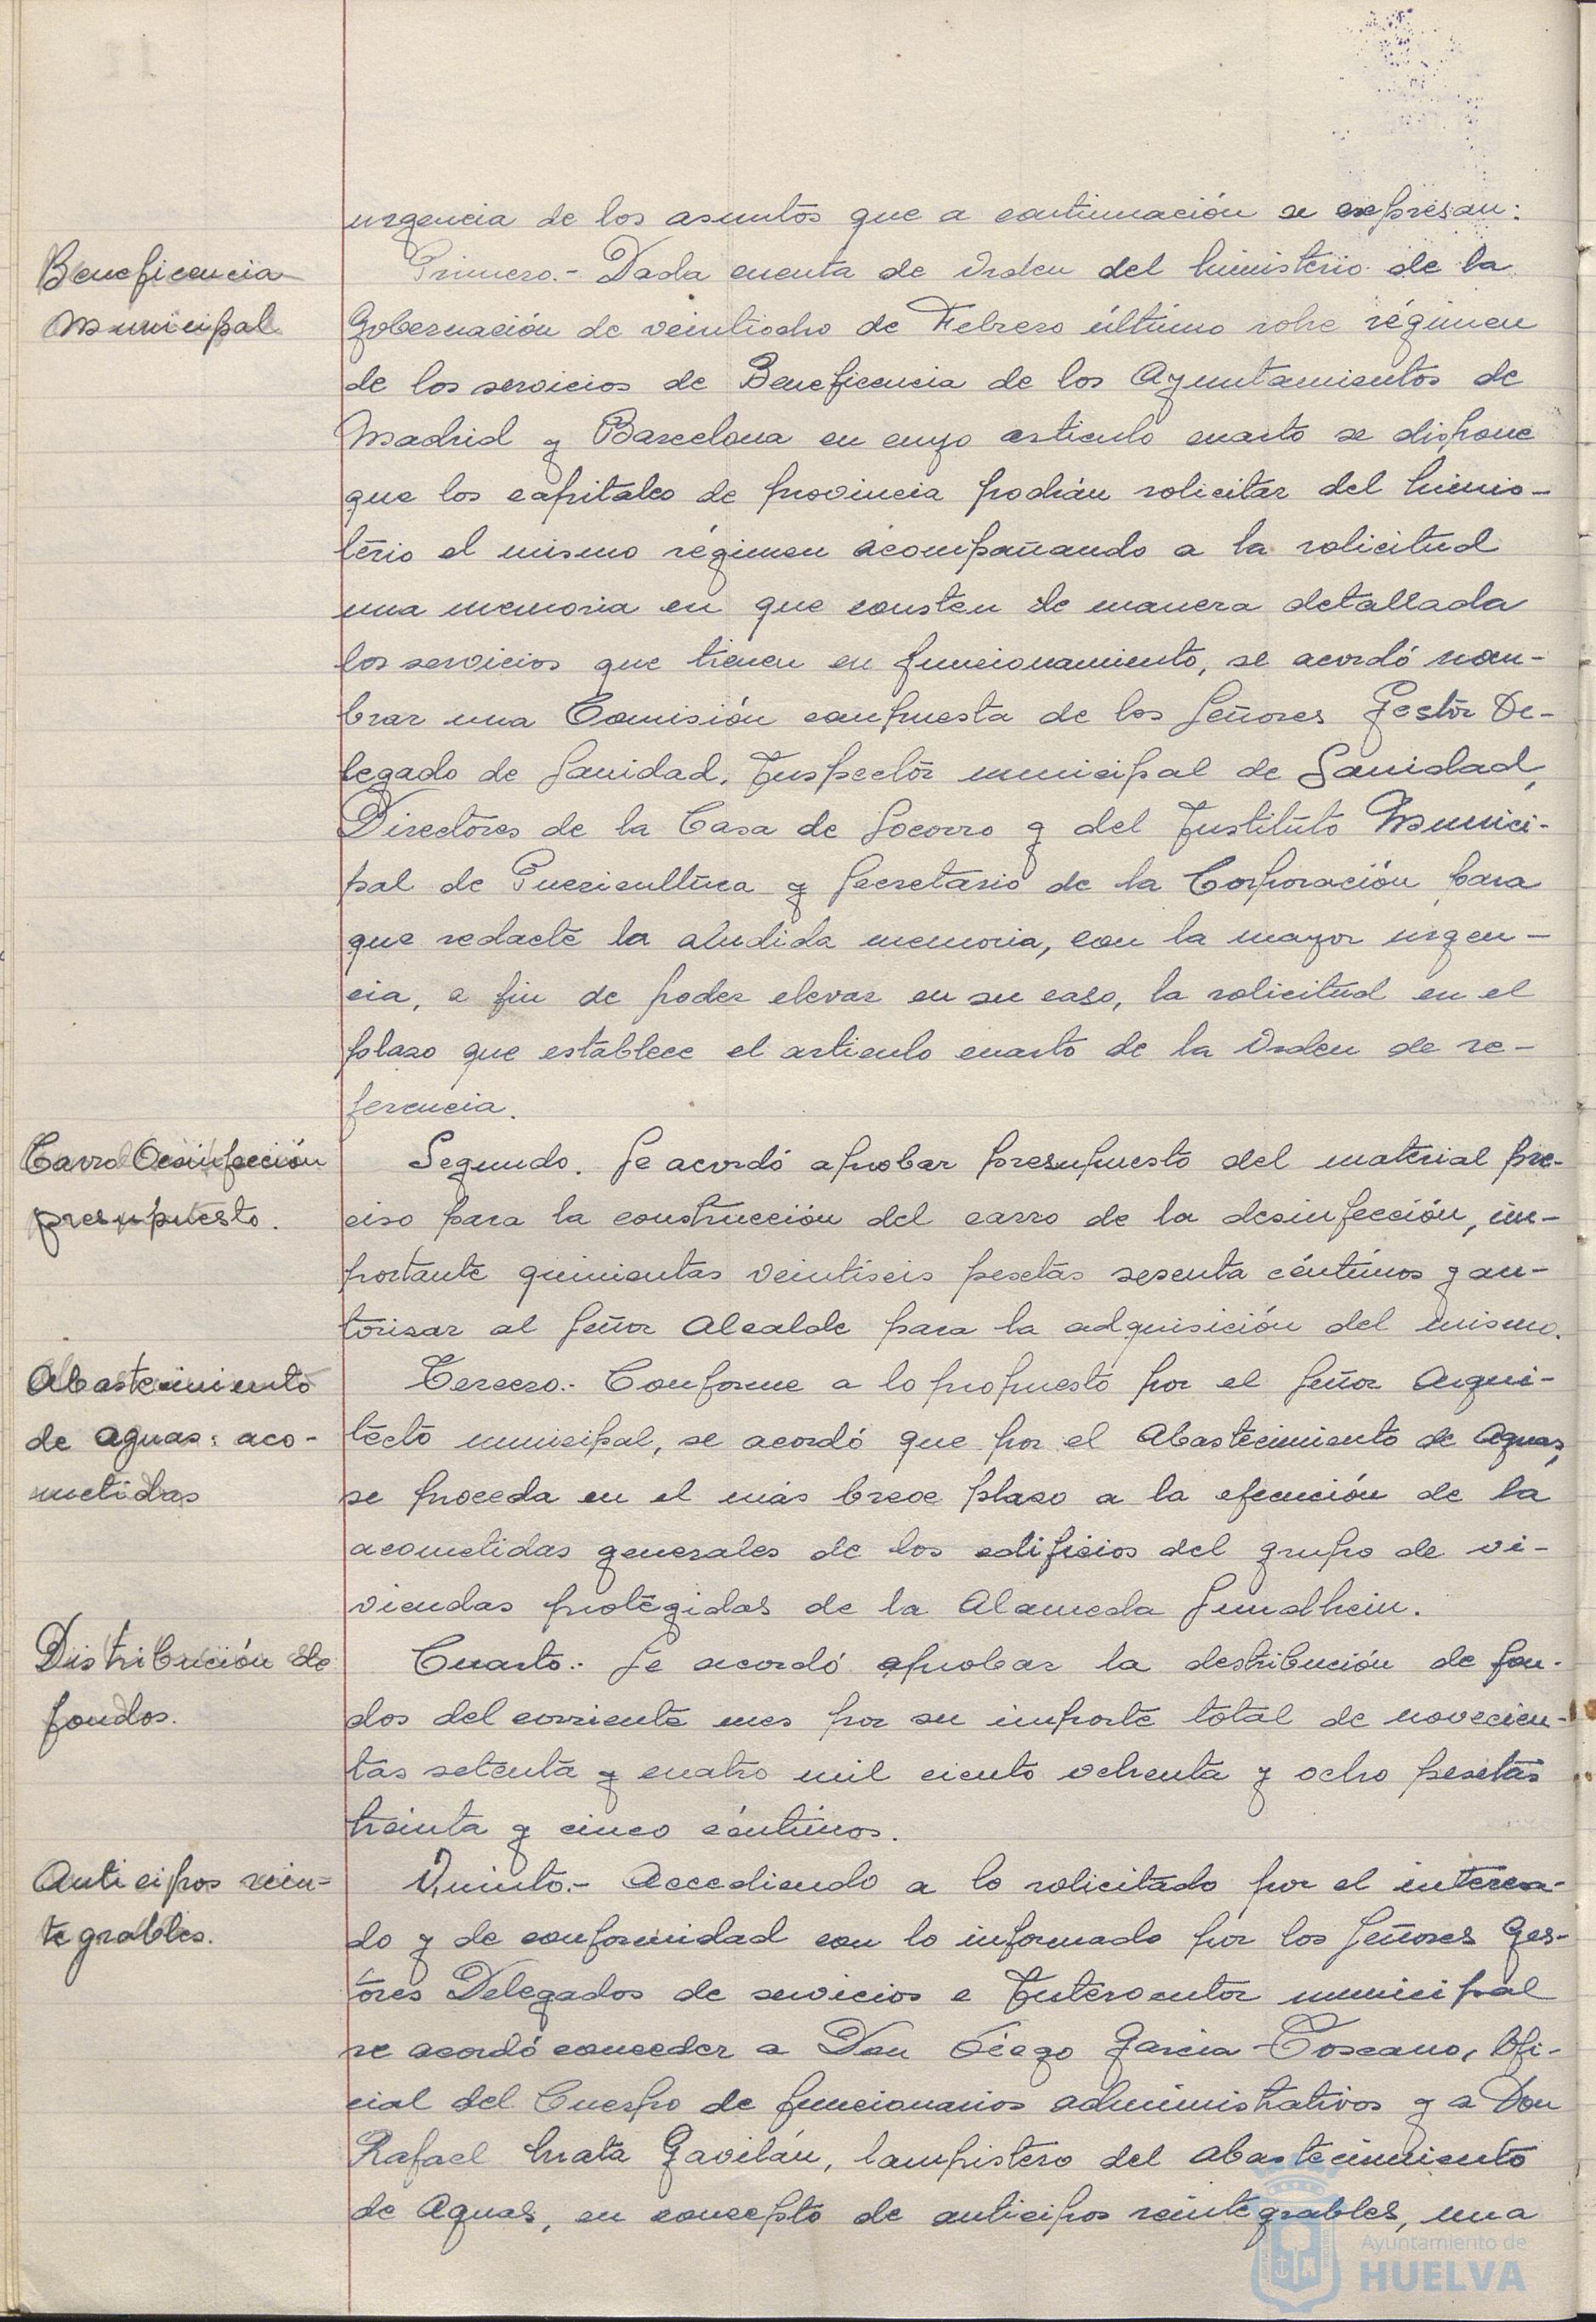 urgencia de los asuntos que a continuación se expresan:
Beneficencia
Municipal
Primero.- Dada cuenta de Orden del Ministerio de la
Gobernación de veintiocho de Febrero último sobre régimen
de los servicios de Beneficencia de los Ayuntamientos de
Madrid y Barcelona en cuyo articulo cuarto se dispone
que los capitales de provincia podrán solicitar del Minis-
terio el mismo régimen acompañando a la solicitud
una memoria en que consten de manera detallada
los servicios que tienen en funcionamiento, se acordó nom-
brar una Comisión compuesta de los Señores Gestor De-
legado de Sanidad, Inspector municipal de Sanidad,
Directores de la Casa de Socorro y del Instituto Munici-
pal de Puericultura y Secretario de la Corporación para
que redacte la aludida memoria, con la mayor urgen-
cia, a fin de poder elevar en su caso, la solicitud en el
plazo que establece el articulo cuarto de la Orden de re-
ferencia.
Carro Desinfección
presupuesto.
Segundo. Se acordó aprobar presupuesto del material pre-
ciso para la construcción del carro de la desinfección, im-
portante quinientas veintiseis pesetas sesenta céntimos y au-
torizar al Señor Alcalde para la adquisición del mismo.
Abastecimiento
de aguas: aco-
metidas
Tercero.- Conforme a lo propuesto por el Señor Arqui-
tecto municipal, se acordó que por el Abastecimiento de Aguas,
se proceda en el más breve plazo a la ejecución de la
acometidas generales de los edificios del grupo de vi-
viendas protegidas de la Alameda Sundheim.
Distribución de
fondos.
Cuarto.- Se acordó aprobar la destribución de fon-
dos del corriente mes por su importe total de novecien-
tas setenta y cuatro mil ciento ochenta y ocho pesetas
treinta y cinco céntimos.
Anticipos rein-
tegrables.
Quinto.- Accediendo a lo solicitado por el interesa-
do y de conformidad con lo informado por los Señores Ges-
tores Delegados de servicios e Interventor municipal
se acordó conceder a Don Diego Garcia Toscano, Ofi-
cial del Cuerpo de funcionarios administrativos y a Don
Rafael Mata Gavilán, lampistero del abastecimiento
de Aguas, en concepto de anticipos reintegrables, una
Ayuntamiento de
HUELVA